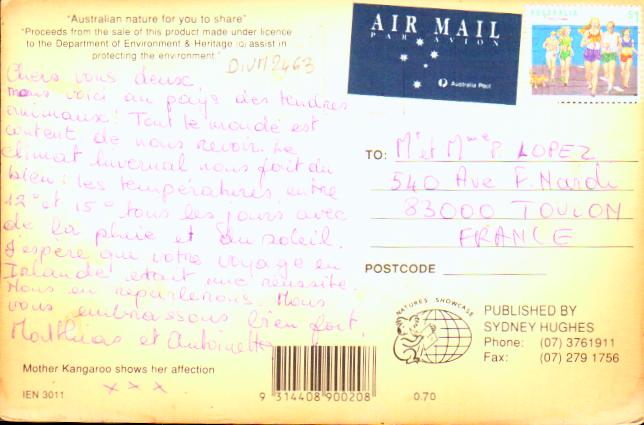 "Australian nature for you to share"
"Proceeds from the sale of this product made under licence
to the Department of Environment & Heritage (Q) assist in
protecting the environment."
DIVM2463
Chers vous deux,
nous voici au pays des tendres
animaux! Tout le monde est
content de nous revoir. Le
climat hivernal nous fait du
bien: les températures entre
12° et 15° tous les jours avec
de la pluie et du soleil.
J'espère que votre voyage en
Irlande était une réussite.
Nous en reparlerons. Nous
vous embrassons bien fort.
Matthias et Antoinette
Mother Kangaroo shows her affection
x x x
IEN 3011
AIR MAIL
PAR AVION
Australia Post
AUSTRALIA
$1
TO: Mr et Mme P. LOPEZ
540 Ave F. Nardi
83000 TOULON
FRANCE
POSTCODE
NATURES SHOWCASE
PUBLISHED BY
SYDNEY HUGHES
Phone: (07) 3761911
Fax: (07) 279 1756
9 314408 900208
0.70